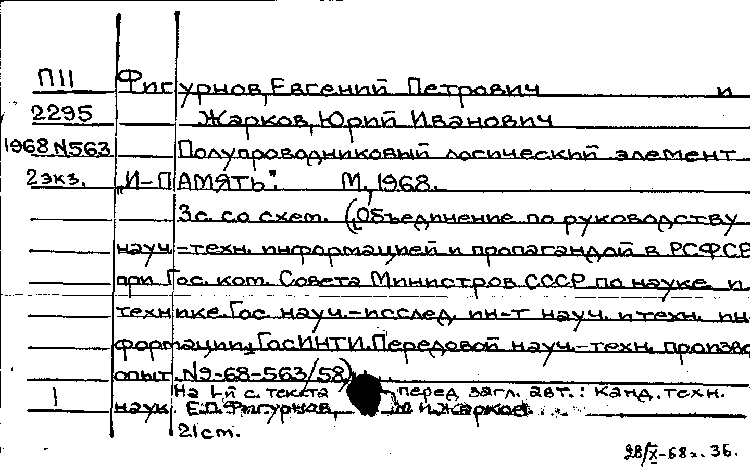 П11 Фигурнов, Евгений Петрович и
2295 Жарков, Юрий Иванович
1968 N563 Полупроводниковый логический элемент
2экз. „И-ПАМЯТЬ". М, 1968.
3с. со схем. (Объединение по руководству
науч.-техн. информацией и пропагандой в РСФСР
при Гос. ком. Совета Министров СССР по науке и
технике. Гос. науч.-исслед. ин-т науч. и техн. ин-
формации. ГосИНТИ. Передовой науч.-техн. произво
опыт. N9-68-563/58)
1 На 1-й с. текста перед загл. авт.: канд. техн.
наук Е.П. Фигурнов, Жарков
21 см.
28/X-68г. 36.